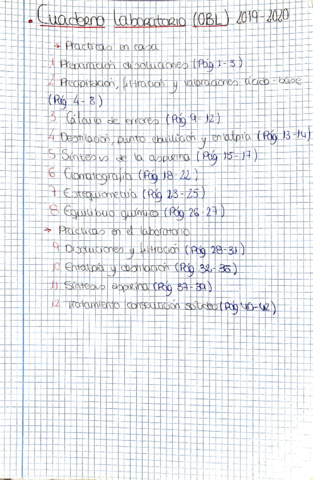 . Cuaderno laboratorio (OBL) 2019-2020
→ Practicas en casa
1. Preparación disoluciones (Pág 1-3)
2. Precipitación, filtración y valoraciones ácido-base
(Pág 4-8)
3 Cálculo de errores (Pág 9-12)
4 Destilación, punto ebullición y entalpía (Pág 13-14)
5 Síntesis de la aspirina (Pág 15-17)
6 Cromatografía (Pág 18-22)
7 Estequiometría (Pág 23-25)
8 Equilibrio químico (Pág 26-27)
→ Practicas en el laboratorio
9 Disoluciones y filtración (Pág 28-31)
10 Entalpía y destilación (Pág 32-36)
11 Síntesis aspirina (Pág 37-39)
12 Tratamiento (Pág 40-42)